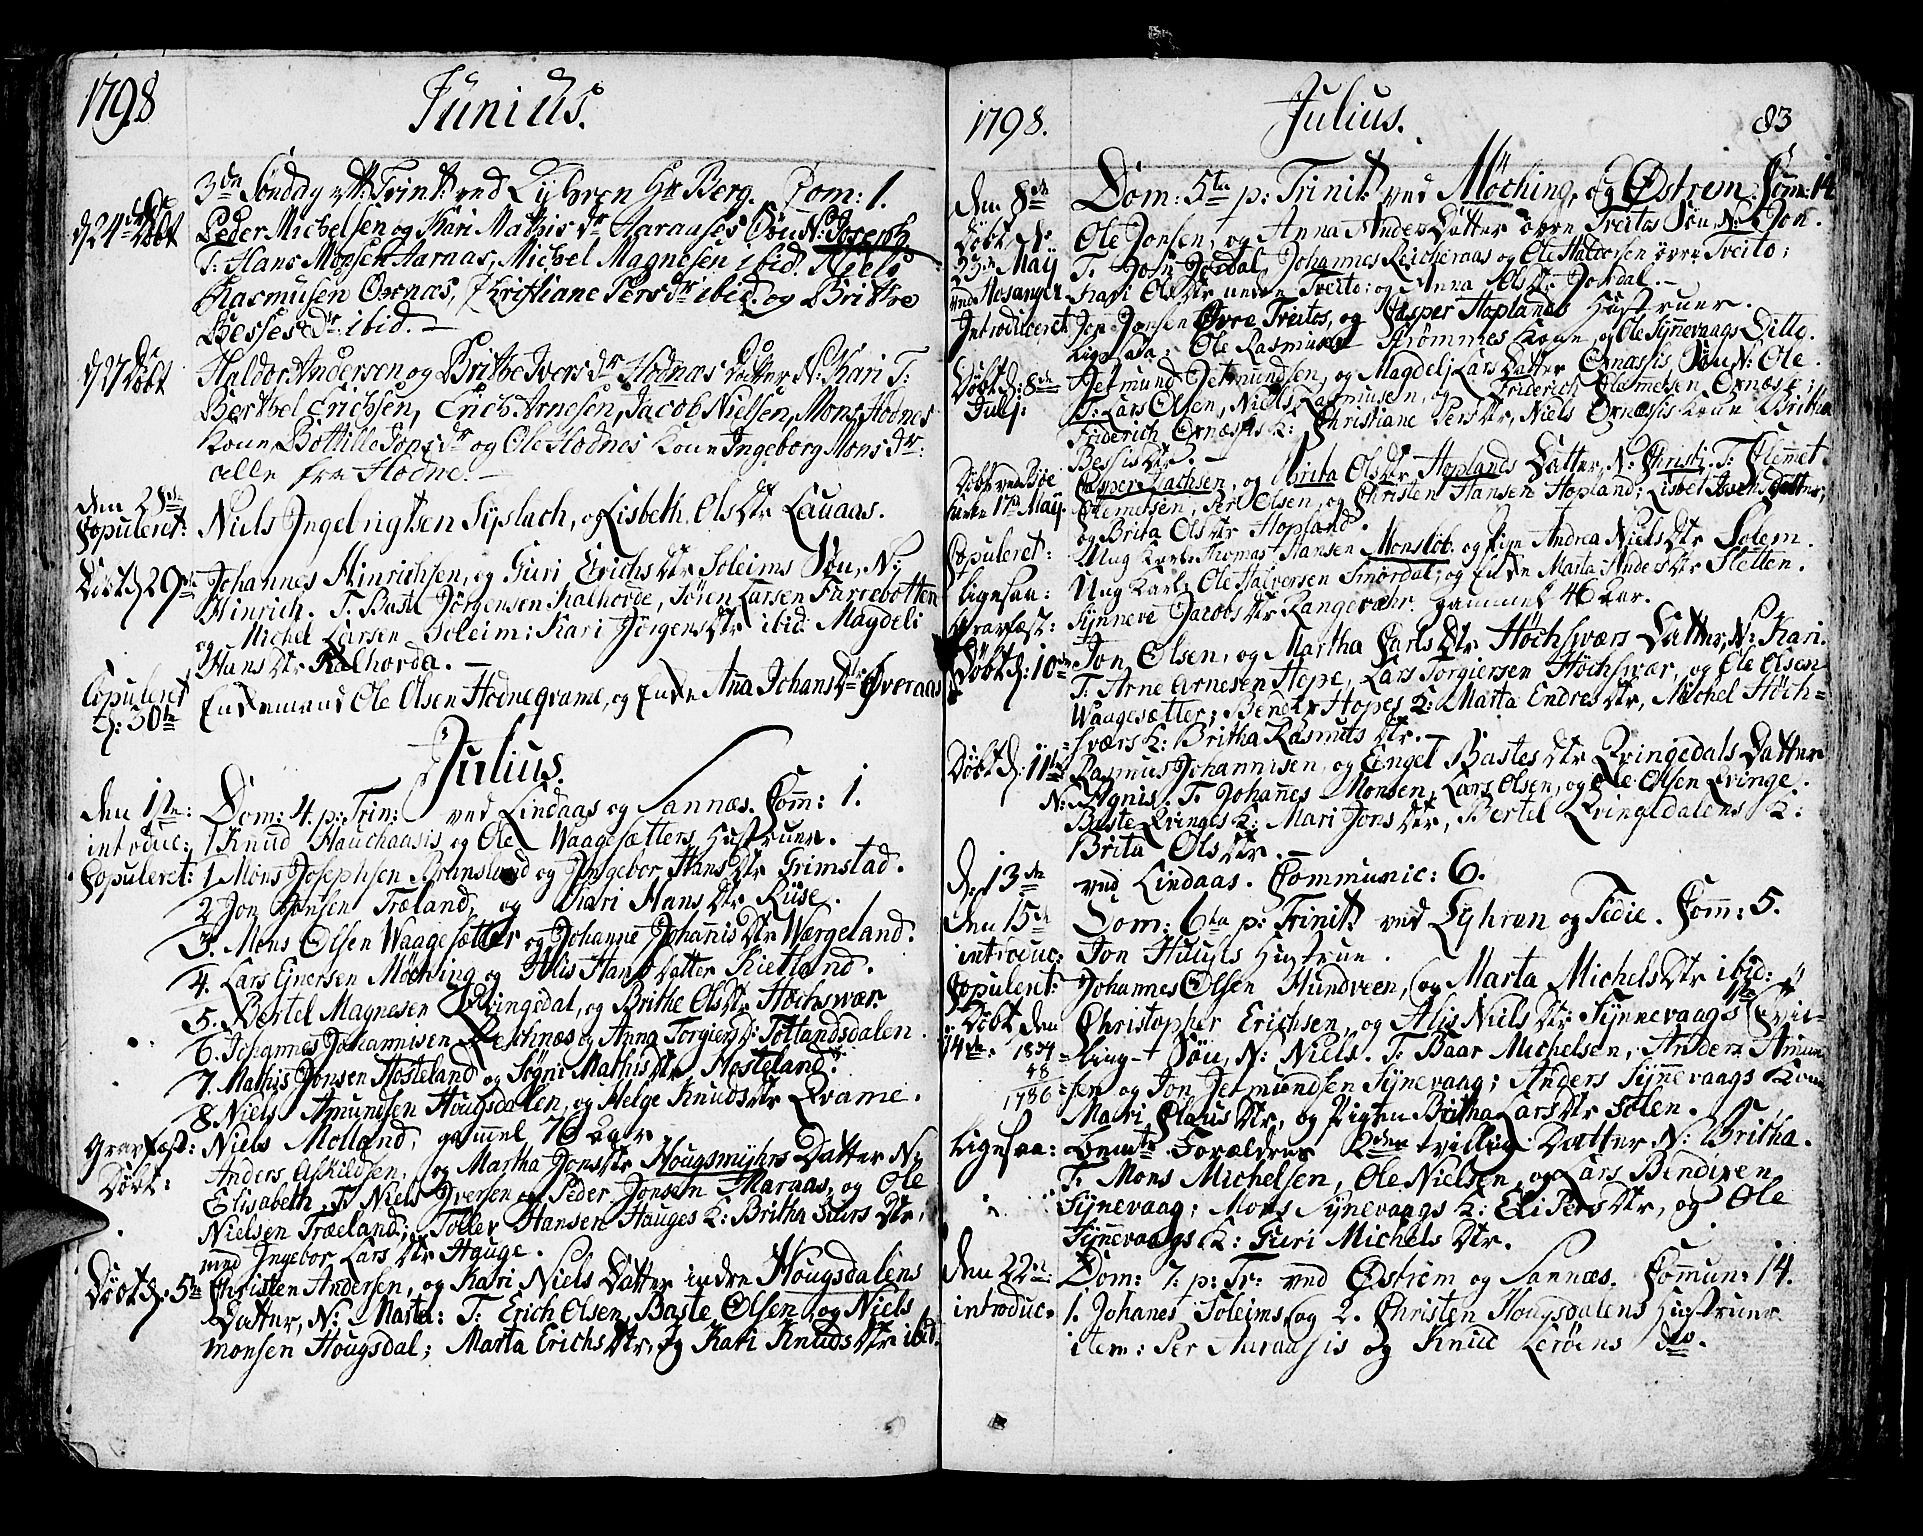 1798 Junius.
3de Söndag eft: Trinit: ved Lyhren Hr Berg. Com: 1.
d 24de Döbt Peder Michelsen og Kari Mathis dr Aarauses Sön N: Joseph
T: Hans Monsen Aarnas, Michel Magnesen ibid. Niels
Rasmusen Ornæs, Christiane Pers dr ibid. og Brithe
Besses dr: ibid. —
d 27 Döbt Haldor Andersen og Brithe Ivers dr Hodnæs Datter N: Kari T:
Berthel Erichsen, Erich Arnesen, Jacob Nielsen, Mons Hodnes
Kone Bottille Jons dr og Ole Hodnes Kone Ingeborg Mons dr:
alle fra Hodne. —
den 28de
Copuleret: Niels Ingebrigtsen Syslach, og Lisbeth Ols Dtr Lauaas.
Döbt d 29de Johannes Hinrichsen, og Guri Erichs Dtr Soleims Sön, N:
Hinrich. T. Baste Jörgensen Kalhorde, Sören Larsen Furrebotten
og Michel Larsen Soleim; Kari Jörgens Dtr ibid: Magdeli
Hans Dtr Kalhorda. —
Copuleret
d: 30te Enkemand Ole Olsen Hodneqvame, og Enke Anna Johans Dtr Överaas
Julius.
den 1ste: Dom: 4. p: Trin: ved Lindaas og Sannæs. Com: 1.
introduc: 1 Knud Hauchaasis og Ole Waagesætters Hustruer.
Copuleret: 1 Mons Josephsen Brunsland og Ingebor Hans Dtr Grimstad.
2 Jon Jonsen Træland, og Kari Hans Dtr Riise.
3. Mons Olsen Waagesætter og Johanne Johannis Dtr Wærgeland.
4. Lars Ejnersen Möching og Alis Hans Datter Kietland.
5. Bertel Magnesen Qvingedal, og Brithe Ols Dtr Höchsvær.
6. Johannes Johannisen Reschnæs og Anna Torgiers D: Totlandsdalen.
7. Mathis Jonsen Hosteland og Sögni Mathis Dtr Hosteland.
8. Niels Amundsen Hougsdalen, og Helge Knuds Dtr Qvame.
Gravfæst: Niels Molland, gammel 76 aar
Döbt: Anders Askildsen, og Martha Jons Dtr Hougsmyhrs Datter N:
Elisabeth. T: Niels Iversen og Peder Jonsen Marnaas, og Ole
Nielsen Træland; Tolles Hansen Hauges K: Britha Lars Dtr,
med Ingebor Lars Dtr Hauge.
Döbt d: 5te Christen Andersen, og Kari Niels Datter indre Hougsdalens
Datter, N: Marta: T: Erich Olsen, Baste Olsen og Niels
Monsen Hougsdal; Marta Erichs Dtr, og Kari Knuds Dtr ibid.
1798. Julius. 83
den 8de Dom: 5te p: Trinit: ved Möching, og Östrem. Com: 14
Döbt Ole Jonsen, og Anna Anders Datter övre Tveitos Sön, N: Jon.
Maij T. Josu Jordal, Johannes Reicheraas og Ole Haldorsen övre Tveito;
ved Mosanger Kari Ols Dtr nedre Tveito: og Anna Ols Dtr Jordal. —
Introduceret Jon Jonsen Övre Tveitos, og Casper Hoplands Hustruer.
Ligesaa: Ole Rasmusen Strömmes Kone, og Ole Synnevaags Ditto.
Döbt d: 8de Jetmund Jetmundsen, og Magdeli Lars Datter Ornæssis Sön N: Ole.
Julj: T: Lars Olsen, Niels Rasmusen, og Friderich Clemetsen Ornæse;
Friderich Ornæssis K: Christiane Pers Dtr, Niels Ornæssis Kone Britha
Bessis Dtr. —
Döbt ved Böe Casper Zachsen, og Brita Ols Dtr Hoplands Datter, N: Christi. T: Clemet
Kirke 17de Maij Clemetsen, Per Olsen, og Christen Hansen Hopland; Lisbet Ivers Datter,
og Brita Ols Dtr Hopland.
Copuleret: Ung Karl Thomas Hansen Monslöb og Pige Andrea Niels Dtr Solem.
Ligesaa: Ung Karl Ole Halversen Smördal, og Enke Marta Anders Dtr Sletten.
Gravfæst: Synneve Jacobs Dtr Rangevær. gammel 46 aar.
Döbt d: 10de Jon Olsen, og Martha Carls Dtr Höchsværs Datter, N: Kari.
T. Arne Arnesen Hope, Lars Torgiersen Höchsvær, og Ole Olsen
Waagesætter; Bendix Hopes K: Marta Endres Dtr, Michel Höch=
=sværs K: Britha Rasmus Dtr. —
Döbt d: 11te Rasmus Johannisen, og Engel Bastes Dtr Qvingedals Datter
N: Agnis. T. Johannes Monsen, Lars Olsen, og Ole Olsen Qvinge.
Baste Qvinges K: Mari Jons Dtr, Bertel Qvingedalens K:
Brita Ols Dtr. —
d: 13de ved Lindaas. Communic: 6.
den 15de Dom: 6te p: Trinit: ved Lyhren og Sedie. Com: 5.
introduc: Jon Hunyls Hustrue.
Copuleret: Johannes Olsen Hundveen, og Marta Michels Dtr ibid:
Döbt den Christopher Erichsen, og Alis Niels Dtr Synnevaags 1ste Tvil=
14de. 1834 =ling Sön, N: Niels. T: Baar Michelsen, Anders Amun
48
1786 =sen og Jon Jetmundsen Synevaag; Anders Synnevaags Kone
Mari Claus Dtr, og Pigen Britha Lars Dtr Solen.
Ligesaa: Bemte Forældres 2den tvilling: Datter, N: Britha.
T. Mons Michelsen, Ole Nielsen, og Lars Bendixen
Synnevaag; Mons Synevaags K: Eli Pers Dtr, og Ole
Synnevaags K: Guri Michels Dtr.
den 22de: Dom: 7: p: Tr: ved Östrem og Sannæs. Commun: 14.
introduc: 1. Johanes Soleims, og 2. Christen Hougsdalens Hustruer
item: Per Auraasis og Knud Leröens do.